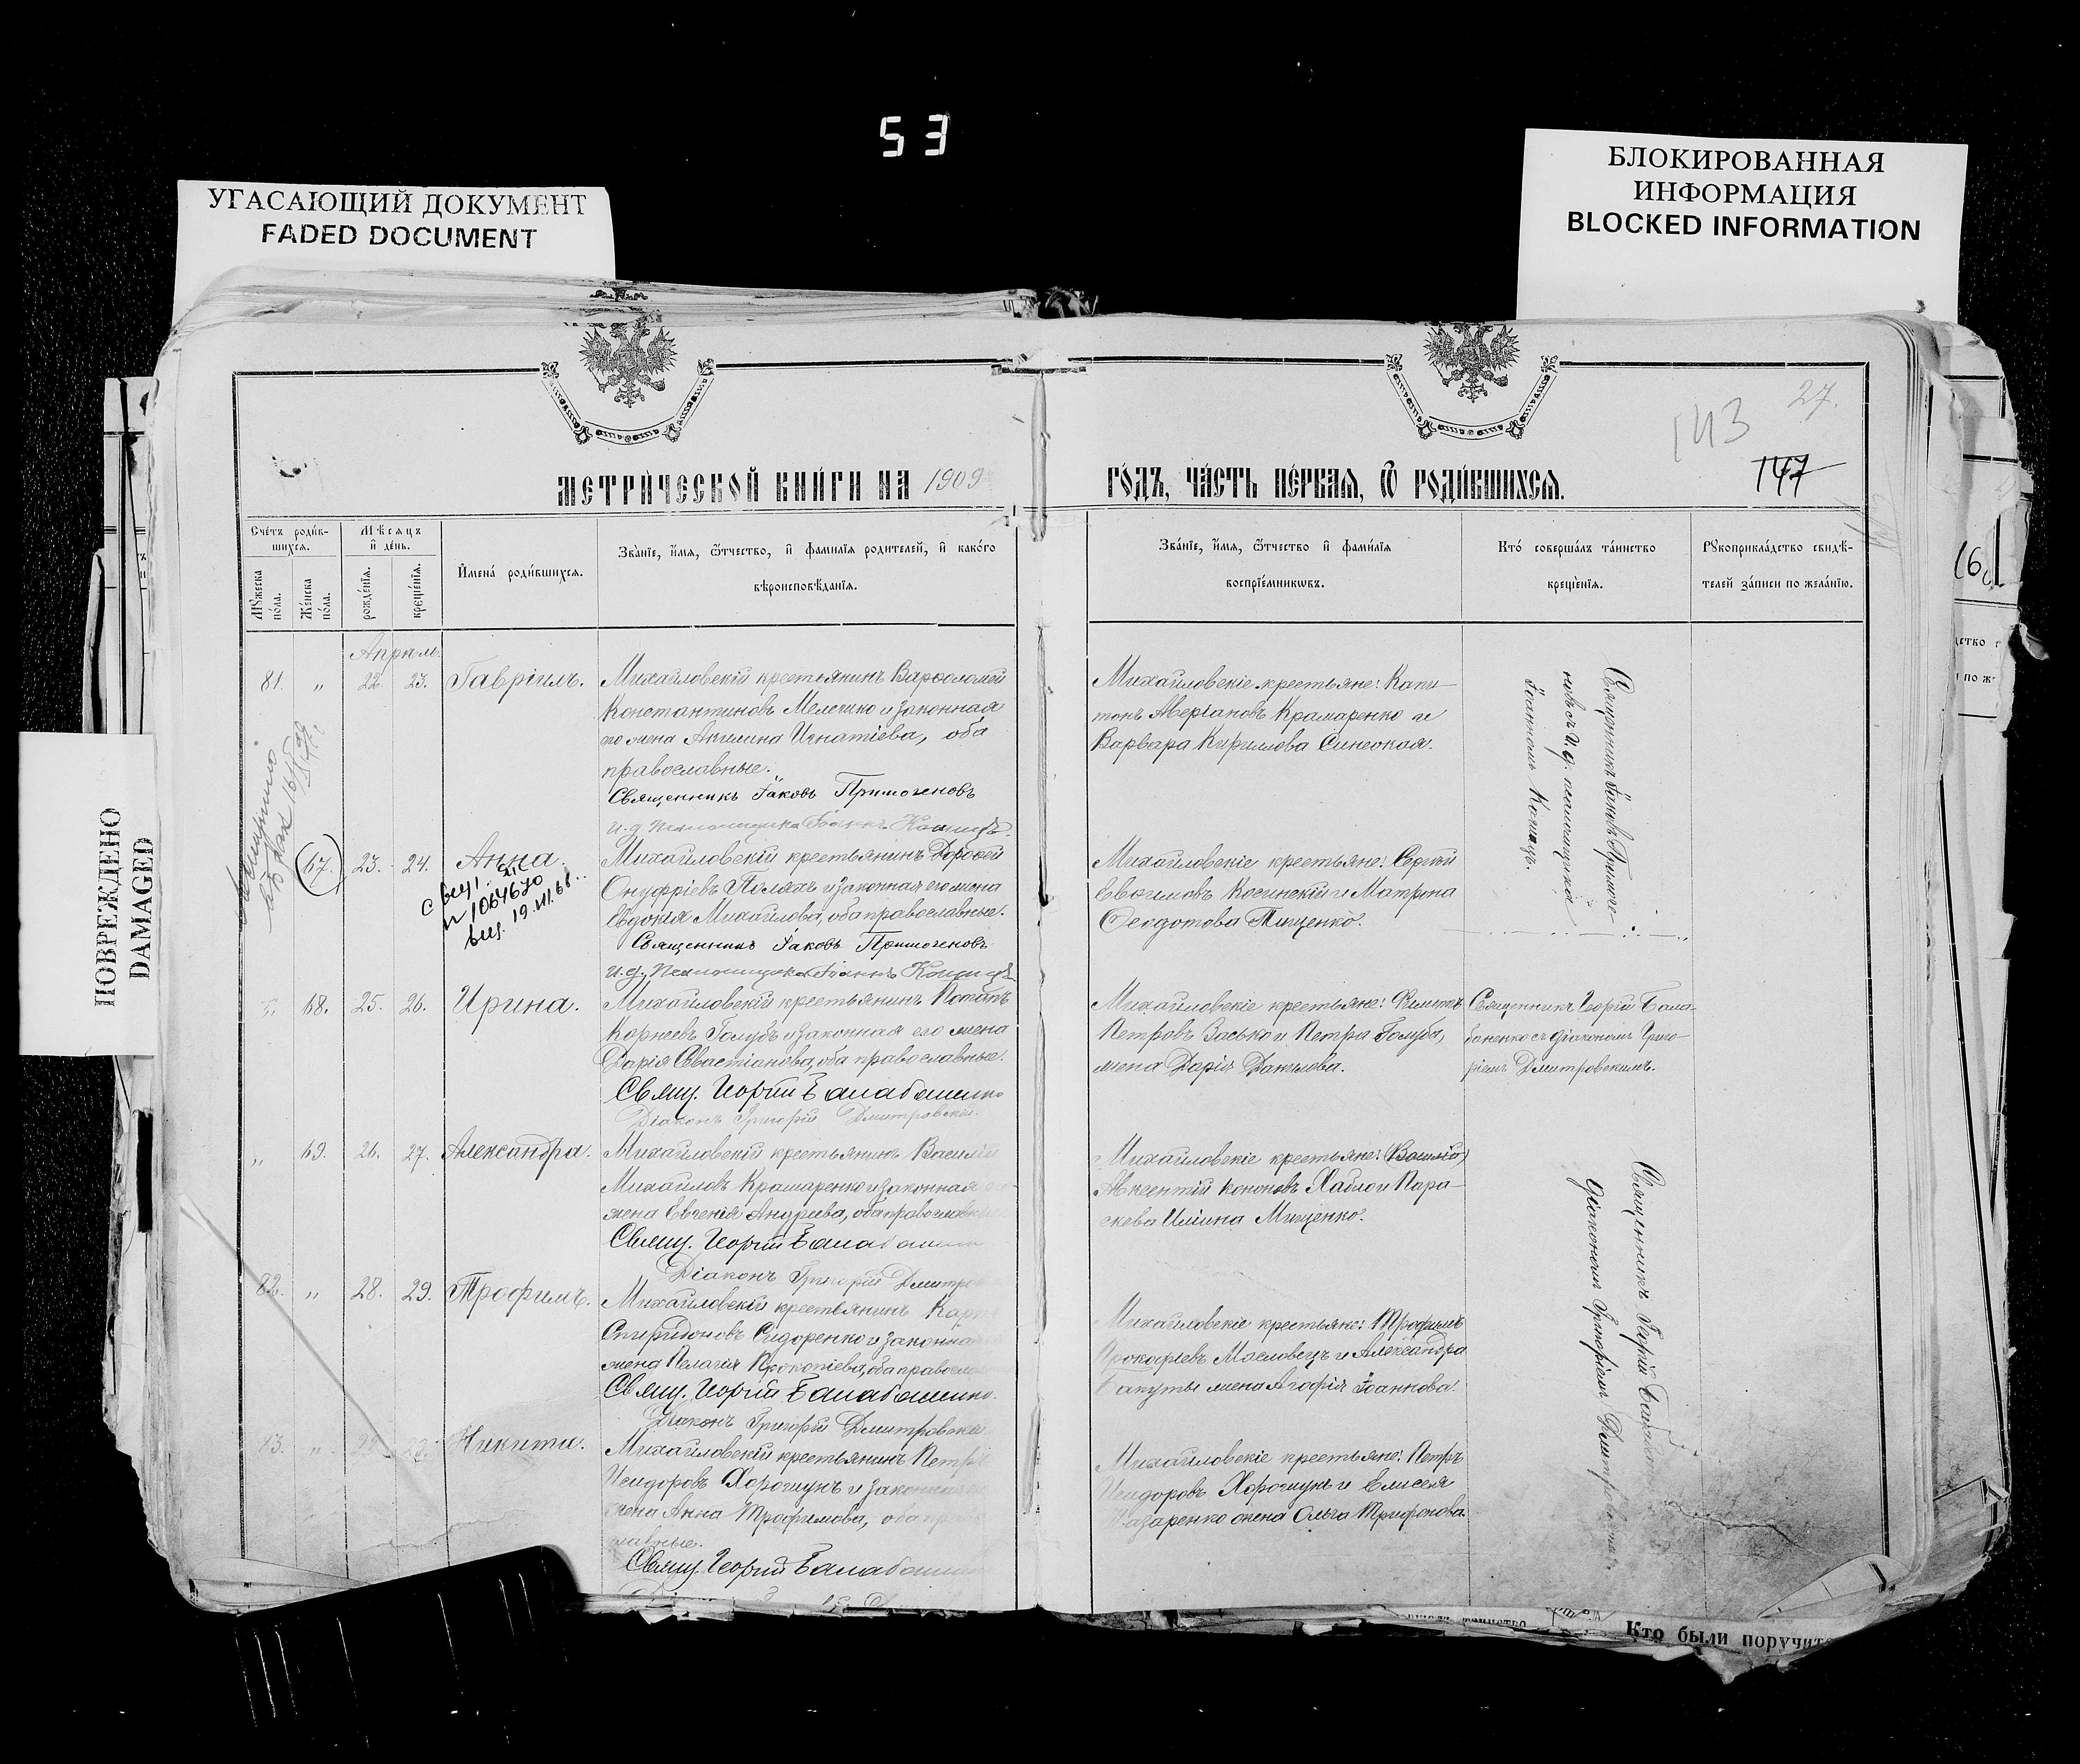 53
УГАСАЮЩИЙ ДОКУМЕНТ
FADED DOCUMENT
БЛОКИРОВАННАЯ
ИНФОРМАЦИЯ
BLOCKED INFORMATION
ПОВРЕЖДЕНО
DAMAGED
27.
143
147
МЕТРИ́ЧЕСКОЙ КНИ́ГИ НА 1909
ГО́ДЪ, ЧА́СТЬ ПЕ́РВАЯ, Ѿ РОДИ́ВШИХСЯ.
Сче́тъ роди́в-
шихся.
Му́жеска по́ла.
Же́нска по́ла.
Мѣсяцъ
и҆ де́нь.
рожде́нїя.
креще́нїя.
И҆мена́ роди́вшихся.
Зва́нїе, и҆́мя, ѻ҆́тчество, и҆ фами́лїя родителей, и҆ како́го
вѣроисповѣ́данїя.
Зва́нїе, и҆́мя, ѻ҆́тчество и҆ фами́лїя
воспрїе́мникѡвъ.
Кто́ соверша́лъ та́инство
креще́нїя.
Рꙋкоприкла́дство свидѣ́-
телей за́писи по жела́нїю.
Апрѣль
81. „ 22. 23. Гавріилъ.
Михайловскій крестьянинъ Варѳоломей
Константиновъ Мелешко и законная
его жена Акилина Игнатіева, оба
православные.
Священникъ Іаковъ Примоченовъ
и.д. Псаломщика Іоаннъ Кошицъ.
Михайловскіе крестьяне: Капи-
тонъ Аверіановъ Крамаренко и
Варвара Кириллова Синеокая.
Священникъ Іаковъ Примоче-
новъ съ и.д. псаломщика
Іоанномъ Кошицъ.
67. 23. 24. Анна.
N 1064670
выд. 19.VII.68.
Михайловскій крестьянинъ Дороѳей
Онуфріевъ Поляхъ и законная его жена
Евдокія Михайлова, оба православные.
Священникъ Іаковъ Примоченовъ
и.д. Псаломщика Іоаннъ Кошицъ
Михайловскіе крестьяне: Сергѣй
Евѳимовъ Косинскій и Матрона
Ѳеодотова Тищенко.
68. 25. 26. Ирина.
Михайловскій крестьянинъ Потапъ
Корнеевъ Голубъ и законная его жена
Дарія Севастіанова, оба православные.
Свящ. Георгій Балабаненко
Діаконъ Григорій Дмитровскій.
Михайловскіе крестьяне: Филиппъ
Петровъ Васько и Петра Голуба,
жена Дарія Данилова.
Священникъ Георгій Бала-
баненко съ діакономъ Григо-
ріемъ Дмитровскимъ.
„ 69. 26. 27. Александра.
Михайловскій крестьянинъ Василій
Михайловъ Крамаренко и законная его
жена Евгенія Андреева, оба православные.
Свящ. Георгій Балабаненко
Діаконъ Григорій Дмитров
Михайловскіе крестьяне: (Василій)
Авксентій Кононовъ Хабло и Пара-
скева Ильина Мищенко.
Священникъ Георгій Балабаненко
діакономъ Григоріемъ Дмитровскимъ
82. „ 28. 29. Трофимъ.
Михайловскій крестьянинъ Карпъ
Спиридоновъ Сидоренко и законная
жена Пелагія Прокопіева, оба правосла
Свящ. Георгій Балабаненко.
Діаконъ Григорій Дмитровскій
Михайловскіе крестьяне: Трофимъ
Прокофіевъ Масловецъ и Александра
Бакуты жена Агафія Іоаннова.
83. „ Никита.
Михайловскій крестьянинъ Петръ
Исидоровъ Хорошунъ и законная
жена Анна Трофимова, оба право
славные.
Свящ. Георгій Балабаненко
Михайловскіе крестьяне: Петръ
Исидоровъ Хорошунъ и Елисея
Назаренко жена Ольга Трифонова.
Кто были поручит